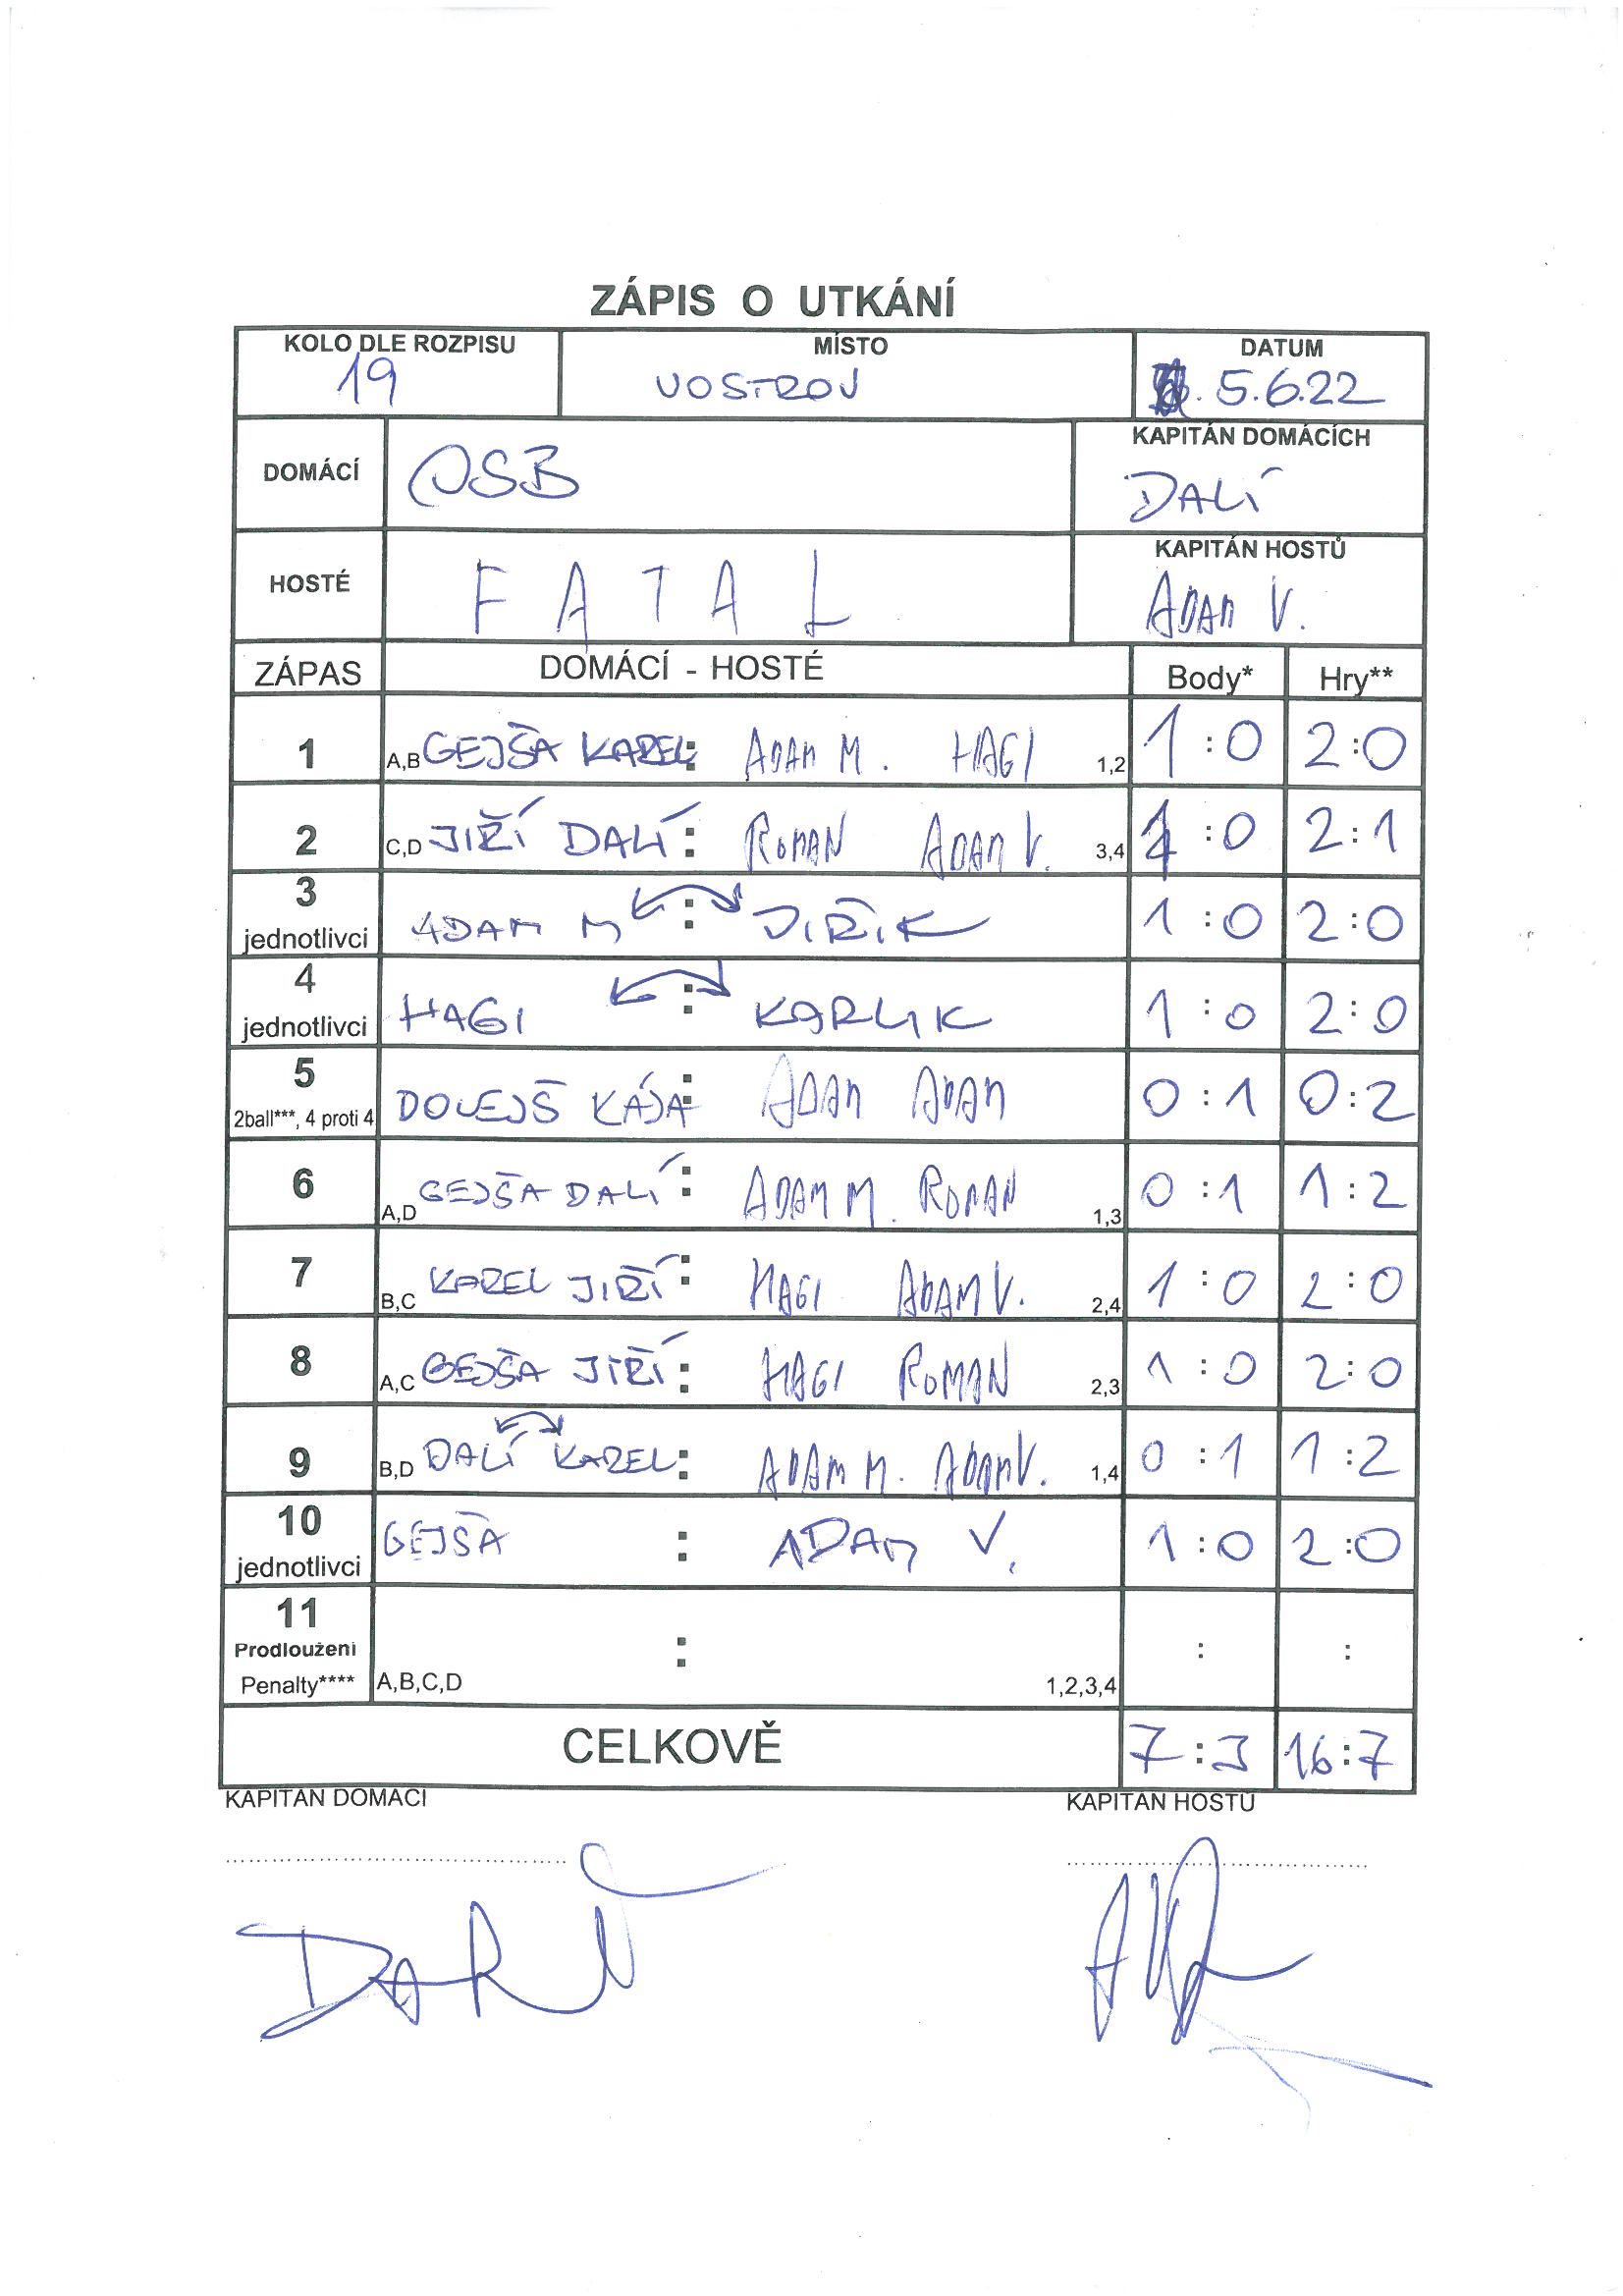 ZÁPIS O UTKÁNÍ
KOLO DLE ROZPISU MÍSTO DATUM
19 VOSTROV 5.6.22
DOMÁCÍ OSB KAPITÁN DOMÁCÍCH
DALÍ
HOSTÉ FATAL KAPITÁN HOSTŮ
ADAM V.
ZÁPAS DOMÁCÍ - HOSTÉ Body* Hry**
1 A,B GEJŠA KAREL : ADAM M. HAGI 1,2 1:0 2:0
2 C,D JIŘÍ DALÍ : ROMAN ADAM V. 3,4 1:0 2:1
3
jednotlivci ADAM M : JIŘIK 1:0 2:0
4
jednotlivci HAGI : KARLIK 1:0 2:0
5
2ball***, 4 proti 4 DOLEJŠ KÁJA : ADAM ADAM 0:1 0:2
6 A,D GEJŠA DALÍ : ADAM M. ROMAN 1,3 0:1 1:2
7 B,C KAREL JIŘÍ : HAGI ADAM V. 2,4 1:0 2:0
8 A,C GEJŠA JIŘÍ : HAGI ROMAN 2,3 1:0 2:0
9 B,D DALÍ KAREL : ADAM M. ADAM V. 1,4 0:1 1:2
10
jednotlivci GEJŠA : ADAM V. 1:0 2:0
11
Prodloužení : : :
Penalty**** A,B,C,D 1,2,3,4
CELKOVĚ 7:3 16:7
KAPITÁN DOMÁCÍ KAPITÁN HOSTŮ